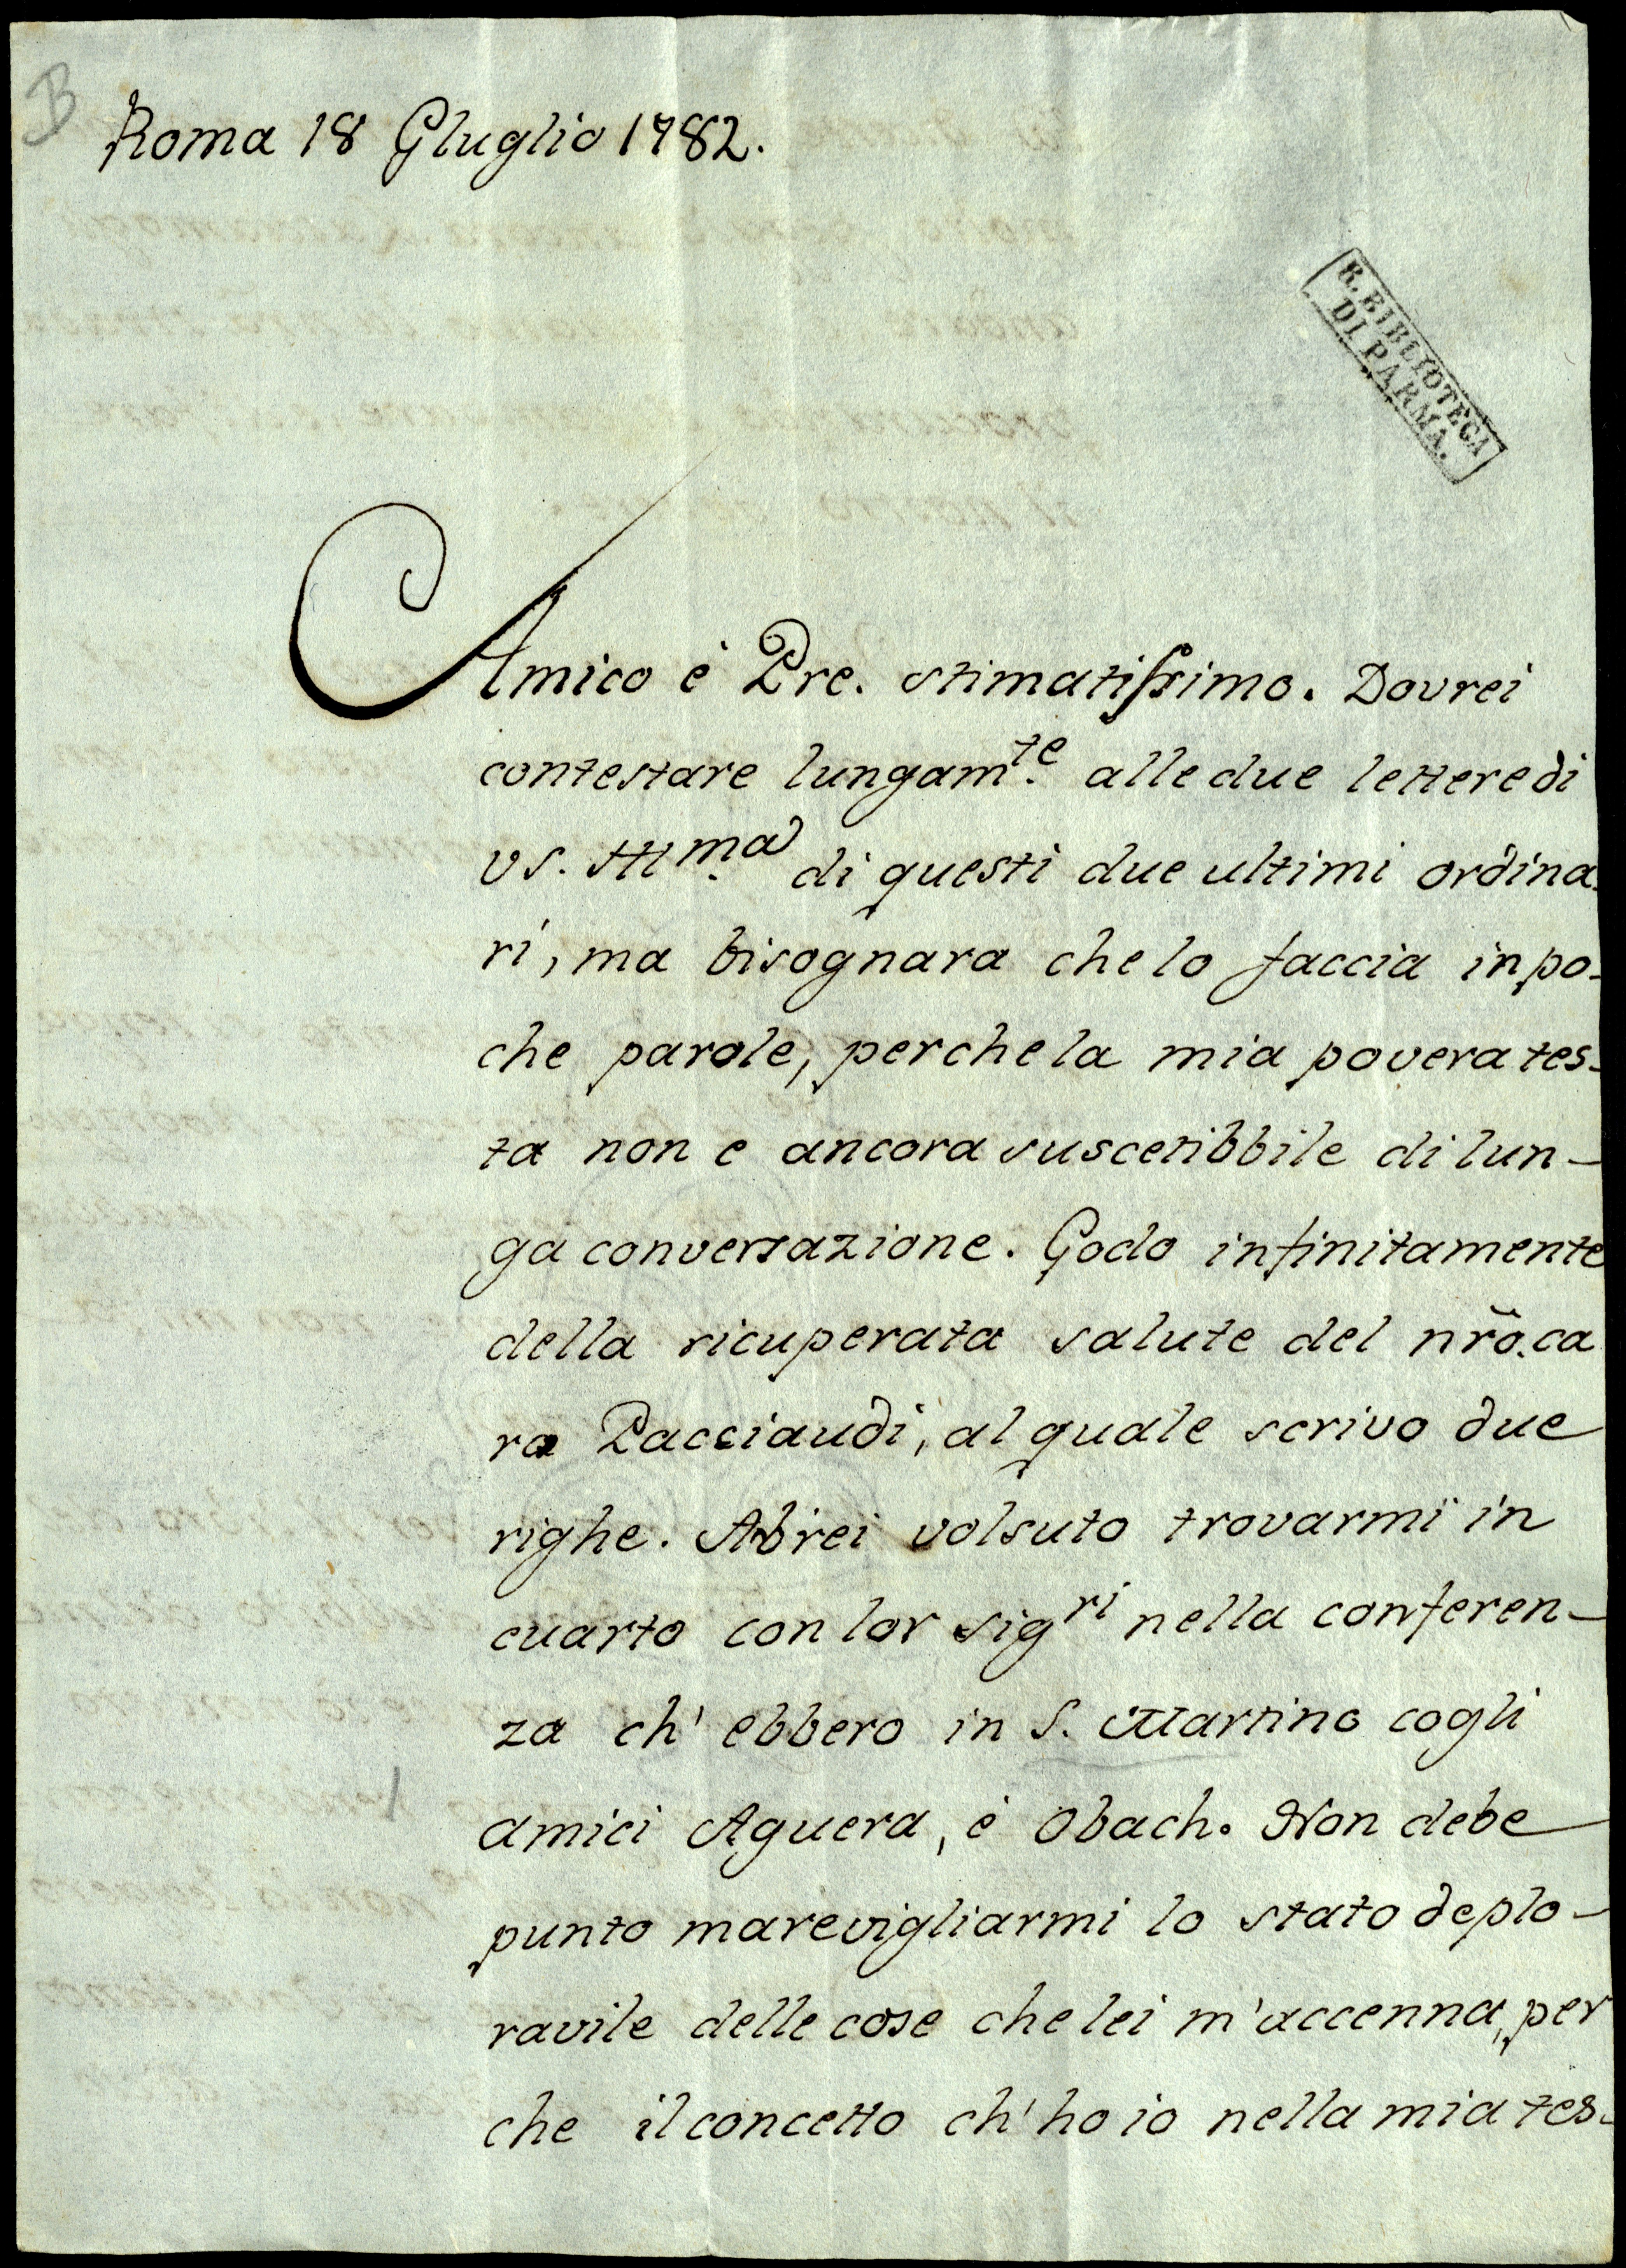 B
Roma 18 Gluglio 1782.
R. BIBLIOTECA
DI PARMA.
Amico è Pre. stimatissimo. Dovrei
contestare lungam.te alle due lettere di
VS. Illm.a di questi due ultimi ordina-
ri, ma bisognara che lo faccia in po-
che parole, perche la mia povera tes-
ta non e ancora suscetibbile di lun-
ga conversazione. Godo infinitamente
della ricuperata salute del nr̃o. ca
ro Pacciaudi, al quale scrivo due
righe. Abrei volsuto trovarmi in
cuarto con lor sigri nella conferen-
za ch' ebbero in S. Martino cogli
amici Aguera, è Obach. Non debe
punto marevigliarmi lo stato deplo-
ravile delle cose che lei m'accenna, per
che il concetto ch' ho io nella mia tes-